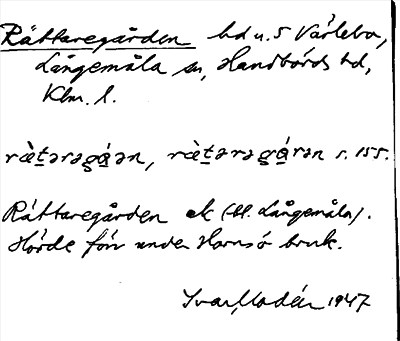 Rättaregården hd u. 5 Värlebo,
Långemåla sn, Handbörds hd,
Klm. l.
ræ̀tərəgá̱ən, ræ̀tərəgá̱rən s. 155.
Rättaregården ek (bl. Långemåla).
Hörde förr under Hornsö bruk.
Ivar Modéer 1947